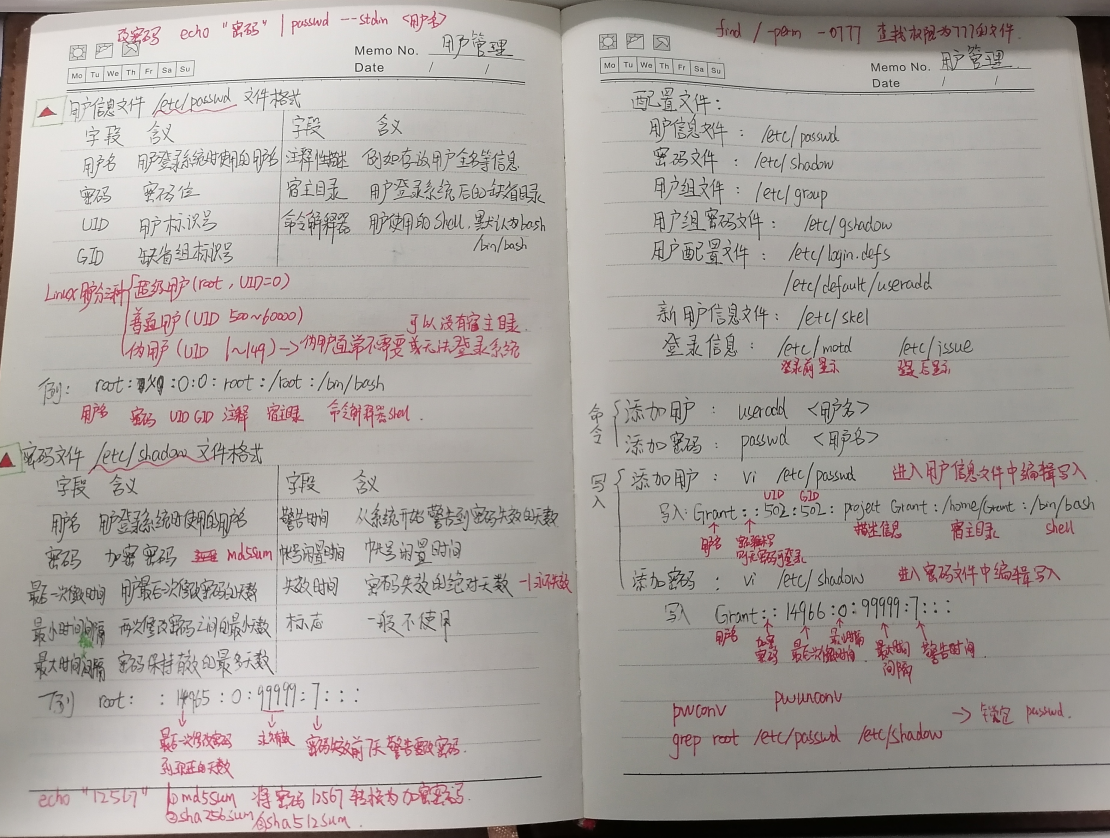 改密码 echo "密码" | passwd --stdin <用户名>
Memo No. 用户管理
Mo Tu We Th Fr Sa Su
Date / /
用户信息文件 /etc/passwd 文件格式
字段 含义 字段 含义
用户名 用户登录系统时使用的用户名 注释性描述 例如存放用户全名等信息
密码 密码位 宿主目录 用户登录系统后的缺省目录
UID 用户标识号 命令解释器 用户使用的Shell,默认为bash
GID 缺省组标识号 /bin/bash
Linux用户分三种 超级用户(root,UID=0)
普通用户(UID 500~60000) 可以没有宿主目录.
伪用户(UID 1~499)→伪用户通常不需要或无法登录系统
例: root:x:0:0:root:/root:/bin/bash
用户名 密码 UID GID 注释 宿主目录 命令解释器shell.
密码文件 /etc/shadow 文件格式
字段 含义 字段 含义
用户名 用户登录系统时使用的用户名 警告时间 从系统开始警告到密码失效的天数
密码 加密密码 md5sum 帐号闲置时间 帐号闲置时间
最后一次修改时间 用户最后一次修改密码的天数 失效时间 密码失效的绝对天数 -1永不失效
最小时间间隔 两次修改密码之间的最小天数 标志 一般不使用
最大时间间隔 密码保持有效的最多天数
例 root: :14965:0:99999:7:::
最后一次修改密码 永久有效 密码失效前7天警告更改密码.
到现在的天数
echo "12567" ①md5sum 将密码12567转换为加密密码.
②sha256sum ③sha512sum.
find / -perm -0777 查找权限为777的文件.
Memo No. 用户管理
Mo Tu We Th Fr Sa Su
Date / /
配置文件:
用户信息文件: /etc/passwd
密码文件: /etc/shadow
用户组文件: /etc/group
用户组密码文件: /etc/gshadow
用户配置文件: /etc/login.defs
/etc/default/useradd
新用户信息文件: /etc/skel
登录信息: /etc/motd /etc/issue
登录前显示 登录后显示
命令 添加用户: useradd <用户名>
添加密码: passwd <用户名>
写入 添加用户: vi /etc/passwd 进入用户信息文件中编辑写入
UID GID
写入: Grant::502:502: project Grant:/home/Grant:/bin/bash
用户名 描述信息 宿主目录 shell
则无密码可登录
添加密码: vi /etc/shadow 进入密码文件中编辑写入
写入 Grant::14966:0:99999:7:::
用户名 加密密码 最后一次修改时间 最小间隔 最大时间间隔 警告时间
pwconv pwunconv
grep root /etc/passwd /etc/shadow → passwd.